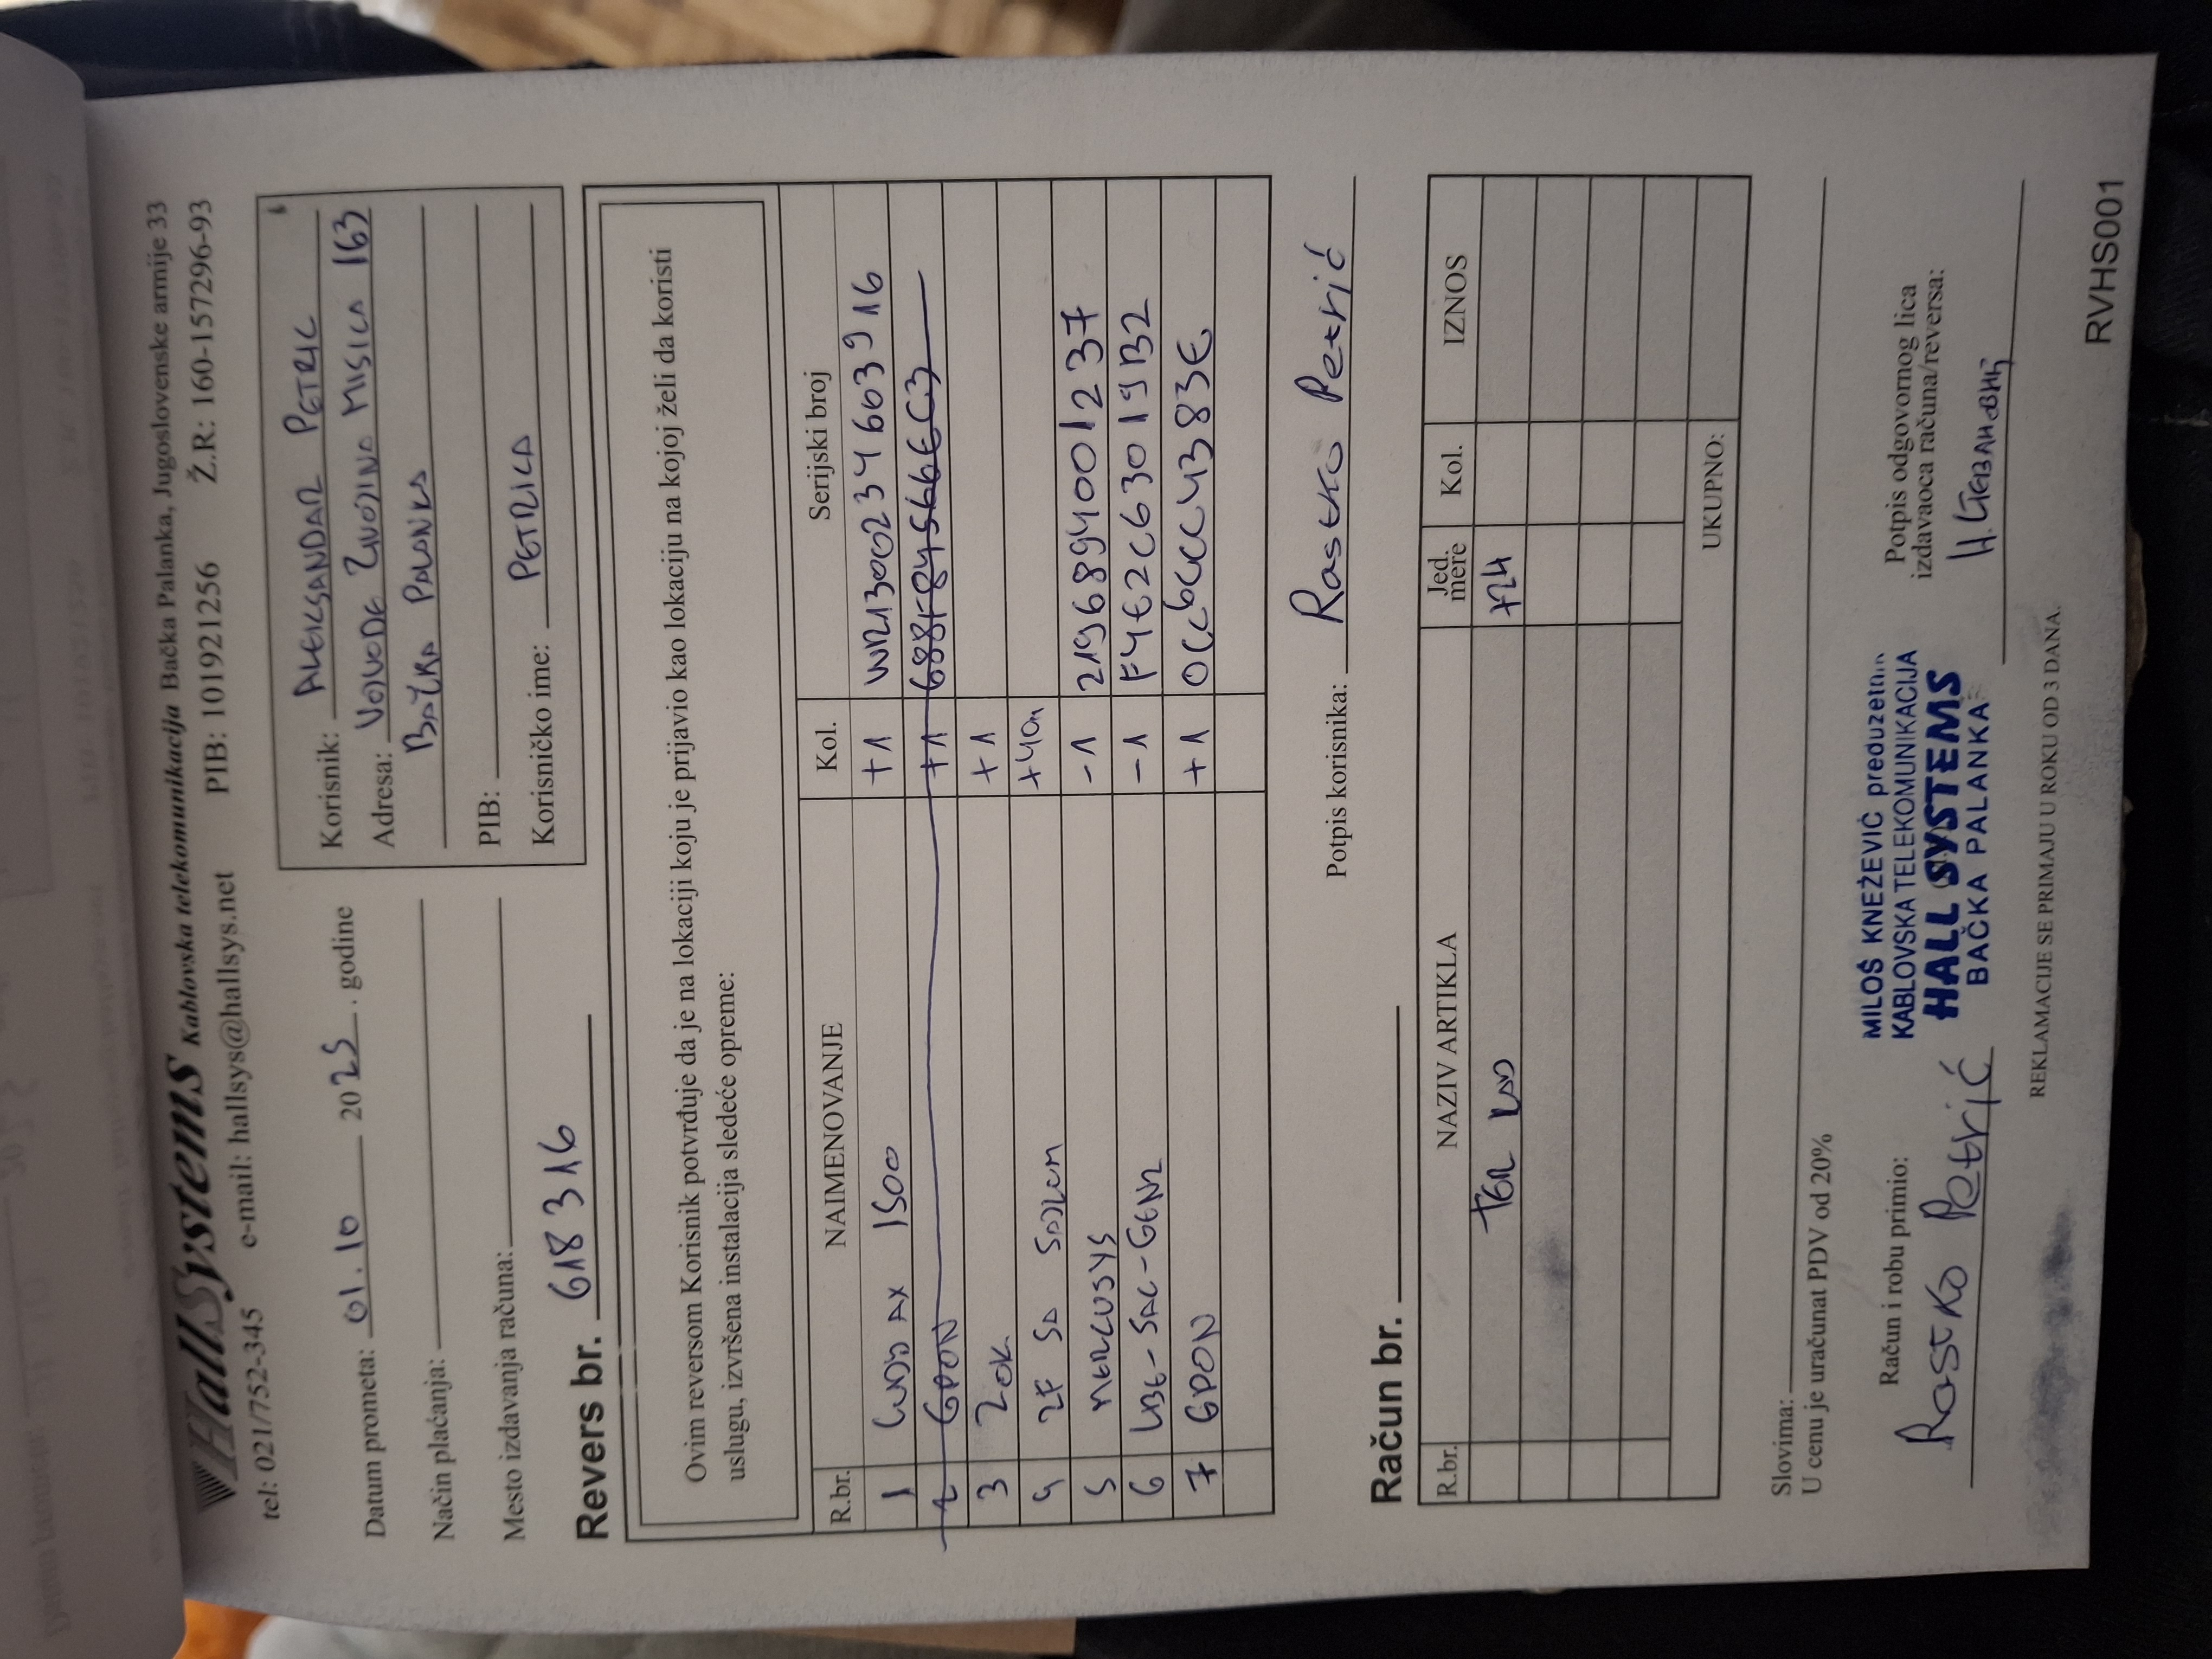 HallSystems Kablovska telekomunikacija Bačka Palanka, Jugoslovenske armije 33
tel: 021/752-345 e-mail: hallsys@hallsys.net PIB: 101921256 Ž.R: 160-157296-93
Datum prometa: 01.10 2025. godine
Način plaćanja:
Mesto izdavanja računa:
Korisnik: ALEKSANDAR PETRIC
Adresa: VOJVODE ZIVOJINA MISICA 163
BAČKA PALANKA
PIB:
Korisničko ime: PETRICA
Revers br. 618316
Ovim reversom Korisnik potvrđuje da je na lokaciji koju je prijavio kao lokaciju na kojoj želi da koristi
uslugu, izvršena instalacija sledeće opreme:
R.br. NAIMENOVANJE Kol. Serijski broj
1 AX 1500 +1
2 GPON +1
3 ZOK +1
4 2F SA
5 MERCUSYS -1 2196894001237
6 LBE-5AC-GEN2 -1 F4E2C63019B2
7 GPON +1
Potpis korisnika: Rastko Petrić
Račun br.
R.br. NAZIV ARTIKLA Jed. mere Kol. IZNOS
UKUPNO:
Slovima:
U cenu je uračunat PDV od 20%
Račun i robu primio:
Rastko Petrić
MILOŠ KNEŽEVIĆ preduzetnik
KABLOVSKA TELEKOMUNIKACIJA
HALL SYSTEMS
BAČKA PALANKA
Potpis odgovornog lica
izdavaoca računa/reversa:
REKLAMACIJE SE PRIMAJU U ROKU OD 3 DANA.
RVHS001